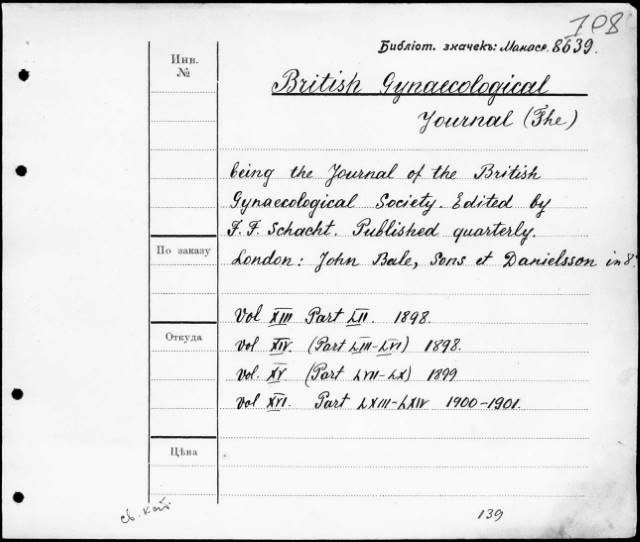 708
Библіот. значекъ: Манас. 8639.
Инв. №
British Gynaecological
Journal (The)
being the Journal of the British
Gynaecological Society. Edited by
F. F. Schacht. Published quarterly.
По заказу
London: John Bale, Sons et Danielsson in 8°
Vol XIII Part LII. 1898.
Откуда
Vol XIV. (Part LIII-LVI) 1898.
Vol. XV (Part LVII-LX) 1899
Vol XVI. Part LXIII-LXIV 1900-1901.
Цѣна
св. кат
139